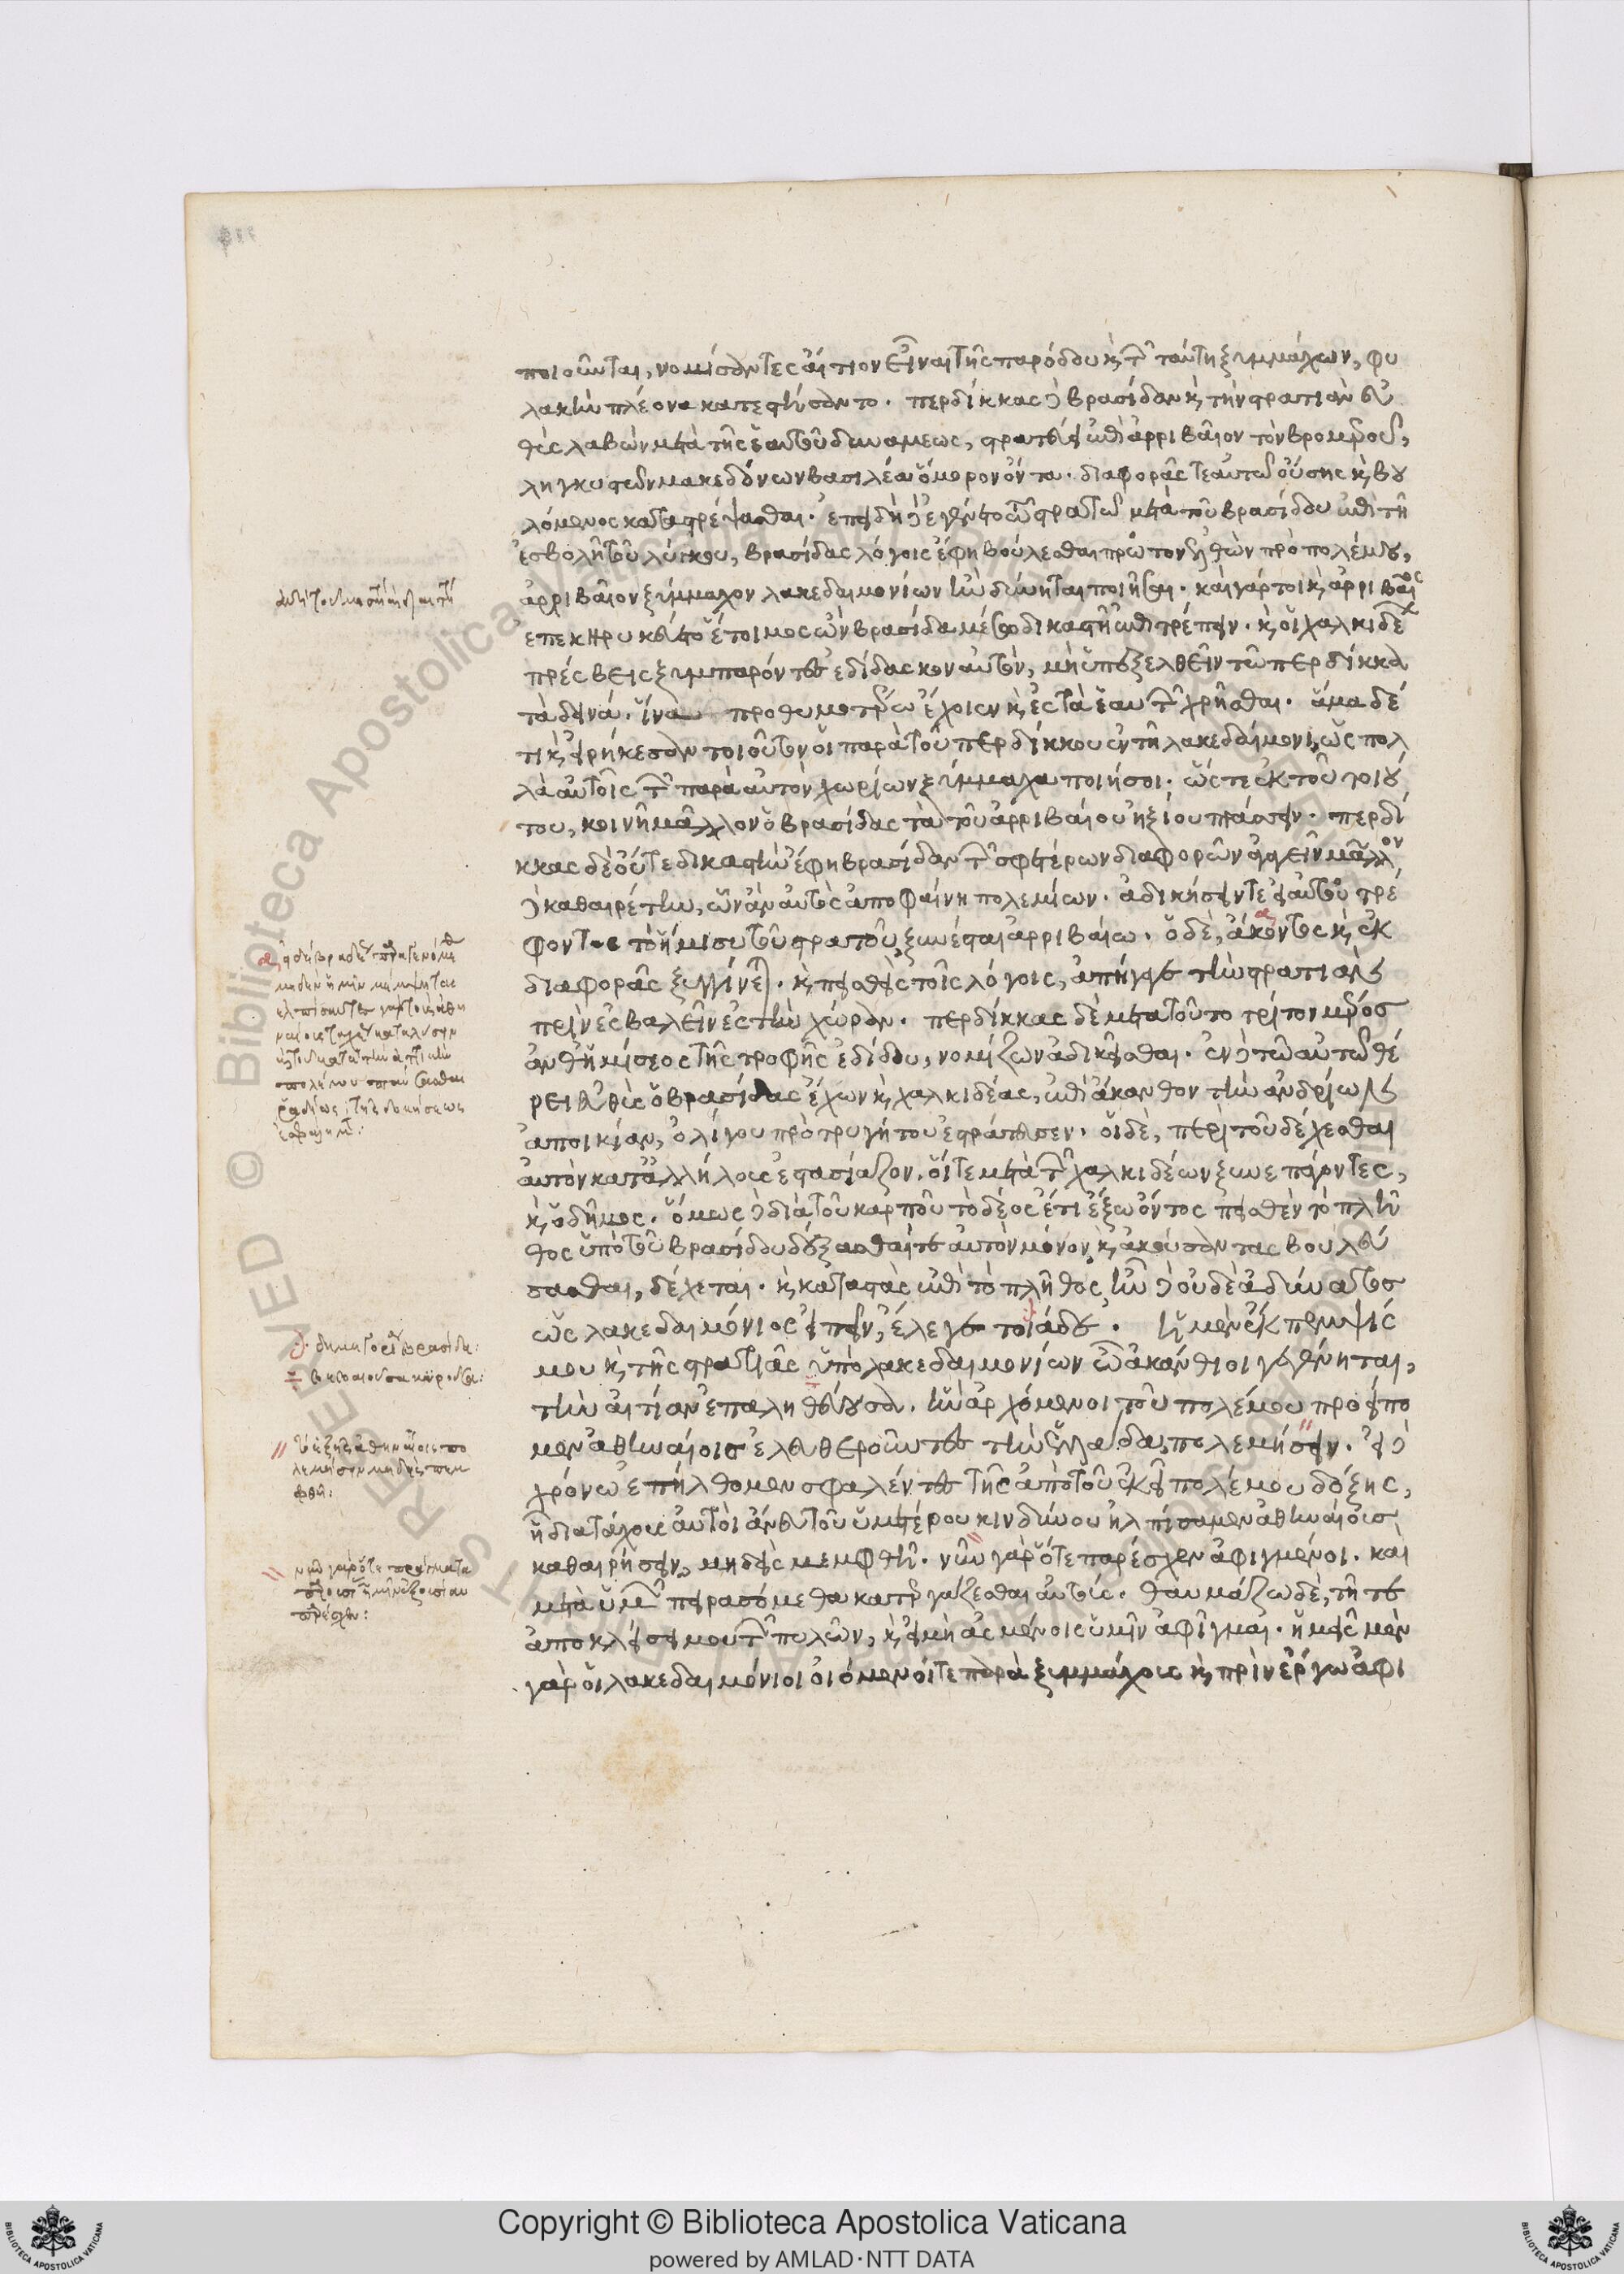 ποιοῦνται, νομίσαντες αἴτιον εἶναι τῆς παρόδου κ, τῶν ταύτη ξυμμάχων, φυ
λακὴν πλέονα κατεστήσαντο. περδίκκας δὲ βρασίδαν κ, τὴν στρατιὰν εὐ
θὺς λαβὼν μετὰ τῆς ἑαυτοῦ δυνάμεως, στρατεύει ἐπὶ ἀρριβαῖον τὸν βρομεροῦ,
λυγκηστῶν μακεδόνων βασιλέα ὅμορον ὄντα. διαφορᾶς τε αὐτῶ οὔσης κ, βου
λόμενος καταστρέψασθαι. ἐπειδὴ δὲ ἐγένετο τῶ στρατῶ μετὰ τοῦ βρασίδου ἐπὶ τῆ
ἐσβολῆ τοῦ λύγκου, βρασίδας λόγοις ἔφη βούλεσθαι πρῶτον ἐλθὼν πρὸ πολέμου,
ἀρριβαῖον ξύμμαχον λακεδαιμονίων ἢν δύνηται ποιῆσαι. καὶ γάρ τοι κ, ἀρριβαῖος
ἐπεκηρυκεύετο ἕτοιμος ὢν βρασίδα μέσω δικαστῆ ἐπιτρέπειν. κ, οἱ χαλκιδέων
πρέσβεις ξυμπαρόντες ἐδίδασκον αὐτὸν, μὴ ὑπεξελθεῖν τῶ περδίκκα
τὰ δεινά. ἵνα προθυμοτέρω ἔχοιεν κ, ἐς τὰ ἑαυτῶν χρῆσθαι. ἅμα δέ
τι κ, εἰρήκεσαν τοιοῦτον οἱ παρὰ τοῦ περδίκκου ἐν τῆ λακεδαίμονι, ὡς πολ
λὰ αὐτοῖς τῶν παρὰ αὐτὸν χωρίων ξύμμαχα ποιήσοι. ὥστε ἐκ τοῦ τοιού
του, κοινῆ μᾶλλον ὁ βρασίδας τὰ τοῦ ἀρριβαίου ἠξίου πράσσειν. περδί
κκας δὲ οὔτε δικαστὴν ἔφη βρασίδαν τῶν σφετέρων διαφορῶν ἀγαγεῖν μᾶλλον
δὲ καθαιρέτην, ὧν ἂν αὐτὸς ἀποφαίνη πολεμίων. ἀδικήσειν τε εἰ αὐτοῦ τρέ
φοντος τὸ ἥμισυ τοῦ στρατοῦ, ξυνέσται ἀρριβαίω. ὁ δὲ, ἄκοντος κ, ἐκ
διαφορᾶς ξυγγίνεται. κ, πεισθεὶς τοῖς λόγοις, ἀπήγαγε τὴν στρατιὰν
πρὶν ἐσβαλεῖν ἐς τὴν χώραν. περδίκκας δὲ μετὰ τοῦτο τρίτον μέρος
ἀνθ' ἡμίσεος τῆς τροφῆς ἐδίδου, νομίζων ἀδικεῖσθαι. ἐν δὲ τῶ αὐτῶ θέ
ρει εὐθὺς ὁ βρασίδας ἔχων κ, χαλκιδέας, ἐπὶ ἄκανθον τὴν ἀνδρίων
ἀποικίαν, ὀλίγου πρὸ τρυγήτου ἐστράτευσεν. οἱ δὲ, περὶ τοῦ δέχεσθαι
αὐτὸν κατ' ἀλλήλους ἐστασίαζον. οἵ τε μετὰ τῶν χαλκιδέων ξυνεπάγοντες,
κ, ὁ δῆμος. ὅμως δὲ διὰ τοῦ καρποῦ τὸ δέος ἔτι ἔξω ὄντος πεισθὲν τὸ πλῆ
θος ὑπὸ τοῦ βρασίδου δέξασθαί τε αὐτὸν μόνον κ, ἀκούσαντας βουλεύ
σασθαι, δέχεται. κ, καταστὰς ἐπὶ τὸ πλῆθος, ἦν δὲ οὐδὲ ἀδύνατος
ὡς λακεδαιμόνιος εἰπεῖν, ἔλεγε τοιάδε. ἡ μὲν ἔκπεμψίς
μου κ, τῆς στρατιᾶς ὑπὸ λακεδαιμονίων ὦ ἀκάνθιοι γεγένηται,
τὴν αἰτίαν ἐπαληθεύουσα. ἣν ἀρχόμενοι τοῦ πολέμου προείπο
μεν ἀθηναίοις ἐλευθεροῦντες τὴν ἑλλάδα, πολεμήσειν. εἰ δὲ
χρόνω ἐπήλθομεν σφαλέντες τῆς ἀπὸ τοῦ ἐκεῖ πολέμου δόξης,
ἧ διὰ τάχους αὐτοὶ ἄνευ τοῦ ὑμετέρου κινδύνου ἠλπίσαμεν ἀθηναίους
καθαιρήσειν, μηδεὶς μεμφθῆ. νῦν γὰρ ὅτε παρέσχεν ἀφιγμένοι. καὶ
μετὰ ὑμῶν πειρασόμεθα κατεργάζεσθαι αὐτούς. θαυμάζω δὲ, τῆ τε
ἀποκλείσει μου τῶν πυλῶν, κ, εἰ μὴ ἀσμένοις ὑμῖν ἀφῖγμαι. ἡμεῖς μὲν
γὰρ οἱ λακεδαιμόνιοι οἰόμενοί τε παρὰ ξυμμάχους κ, πρὶν ἔργω ἀφι
δημηγορία βρασίδου:
Copyright © Biblioteca Apostolica Vaticana
powered by AMLAD·NTT DATA